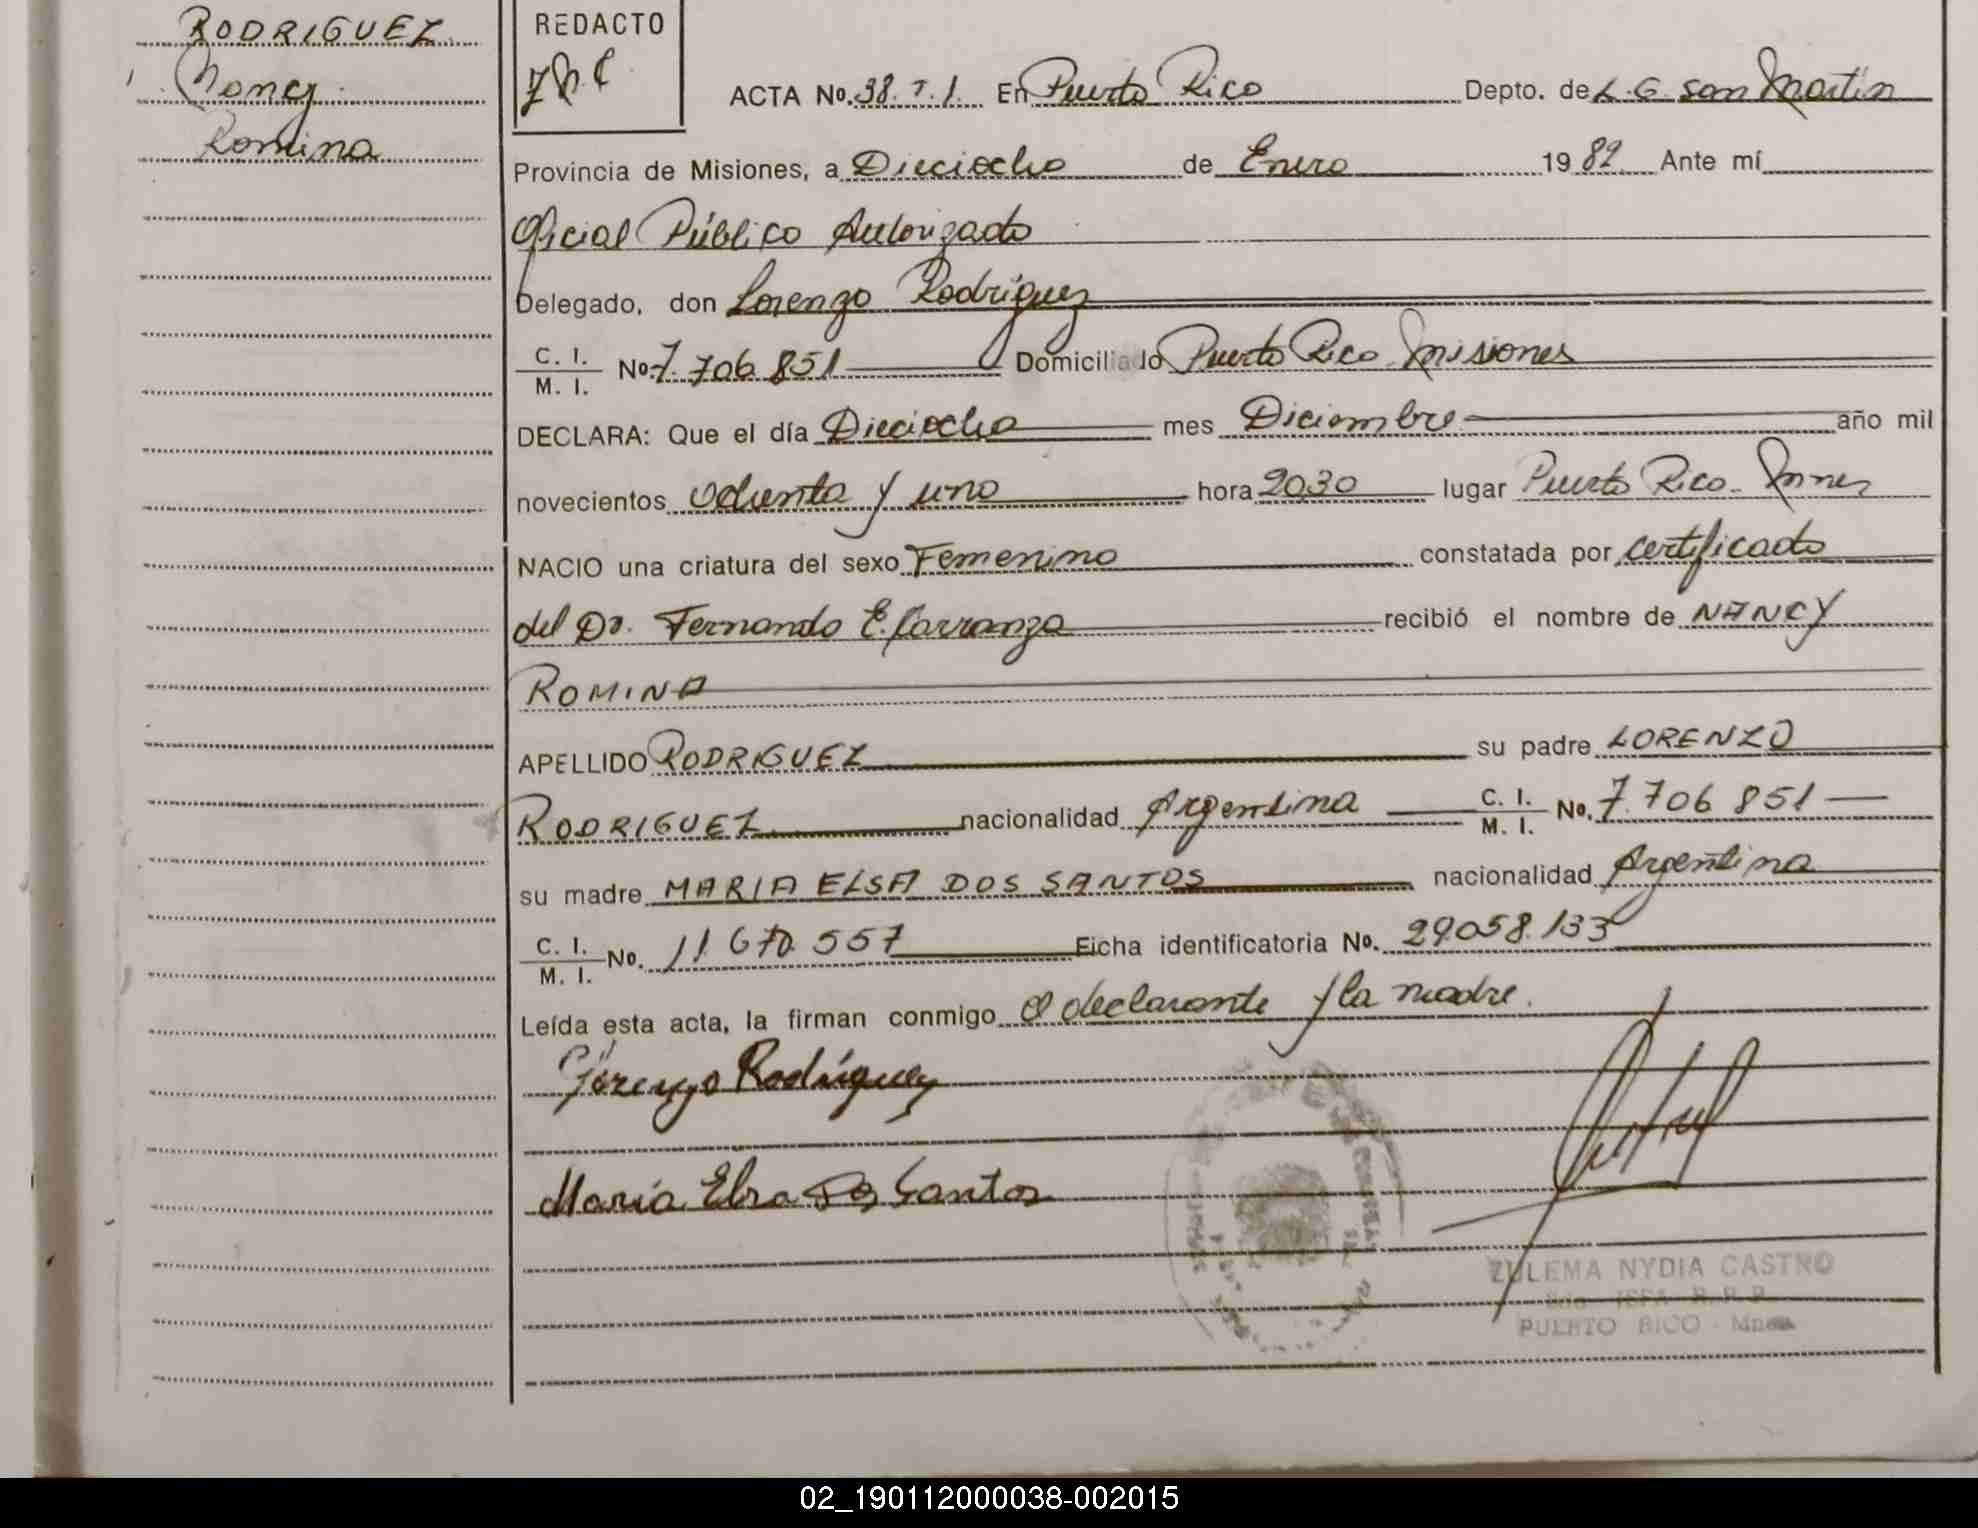 RODRIGUEZ
Nancy
Romina
REDACTO
ACTA No. 38. T. I. En Puerto Rico Depto. de L. G. San Martin
Provincia de Misiones, a Dieciocho de Enero 19 82 Ante mí
Oficial Público Autorizado
Delegado, don Lorenzo Rodríguez
C. I.
M. I. No. 7.706.851 Domiciliado Puerto Rico Misiones
DECLARA: Que el día Dieciocho mes Diciembre año mil
novecientos ochenta y uno hora 2030 lugar Puerto Rico - Mnes
NACIO una criatura del sexo Femenino constatada por certificado
del Dr. Fernando E. Carranza recibió el nombre de NANCY
ROMINA
APELLIDO RODRIGUEZ su padre LORENZO
RODRIGUEZ nacionalidad Argentina C. I.
M. I. No. 7.706 851
su madre MARIA ELSA DOS SANTOS nacionalidad Argentina
C. I.
M. I. No. 11.670.557 Ficha identificatoria No. 29.058.133
Leída esta acta, la firman conmigo el declarante y la madre.
Lorenzo Rodríguez
María Elsa Dos Santos
ZULEMA NYDIA CASTRO
PUERTO RICO - Mnes
02_190112000038-002015